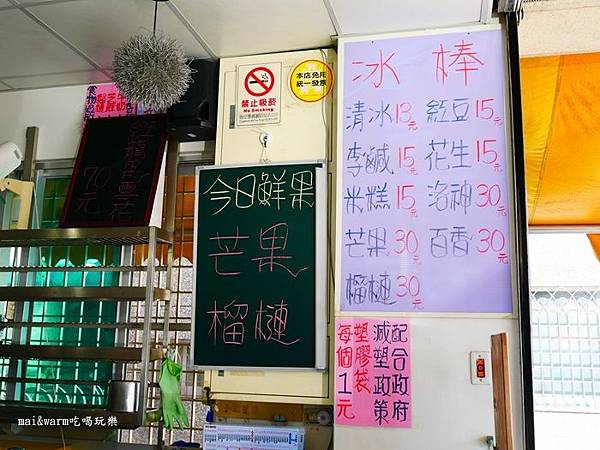 冰棒
清冰13元 紅豆15元
李鹹15元 花生15元
米糕15元 洛神30元
芒果30元 百香30元
榴槤30元
今日鮮果
芒果
榴槤
禁止吸菸
No Smoking
本店免用
統一發票
70元
配合政府
減塑政策
塑膠袋
每個1元
mai&warm吃喝玩樂